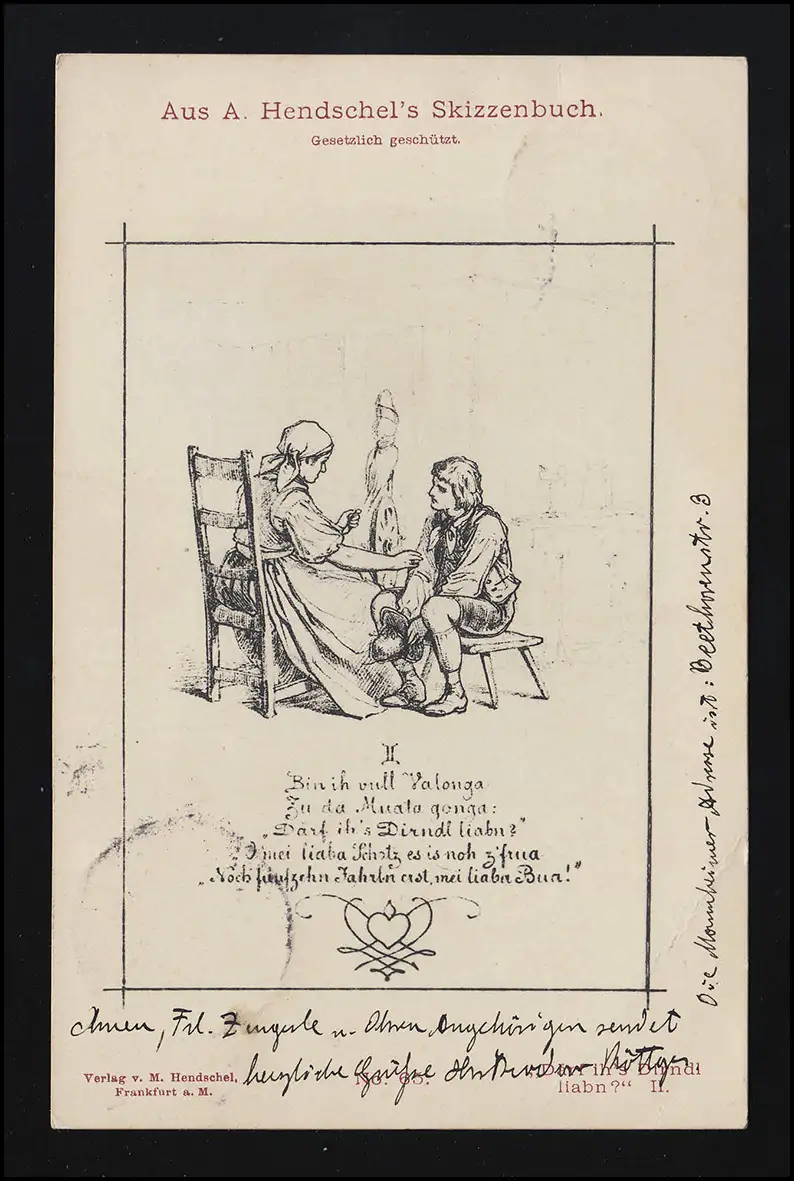 Aus A. Hendschel's Skizzenbuch.
Gesetzlich geschützt.
II
Bin ih vull Valonga
Zu da Muata gonga:
„Darf ih's Dirndl liabn?"
„O mei liaba Schotz, es is noh z'frua
„Noch fünfzehn Jahrln erst, mei liaba Bua!"
Ihnen, Frl. Zingerle u. Ihren Angehörigen sendet
herzliche Grüße Ihr Röttger
Verlag v. M. Hendschel,
Frankfurt a. M.
No. 65.
„Darf ih's Dirndl
liabn?“ II.
Die Mannheimer Adresse ist: Beethovenstr. 3